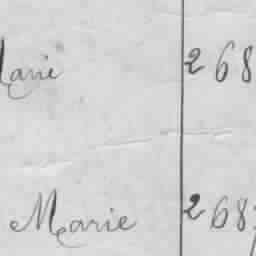 Marie 268
Marie 268